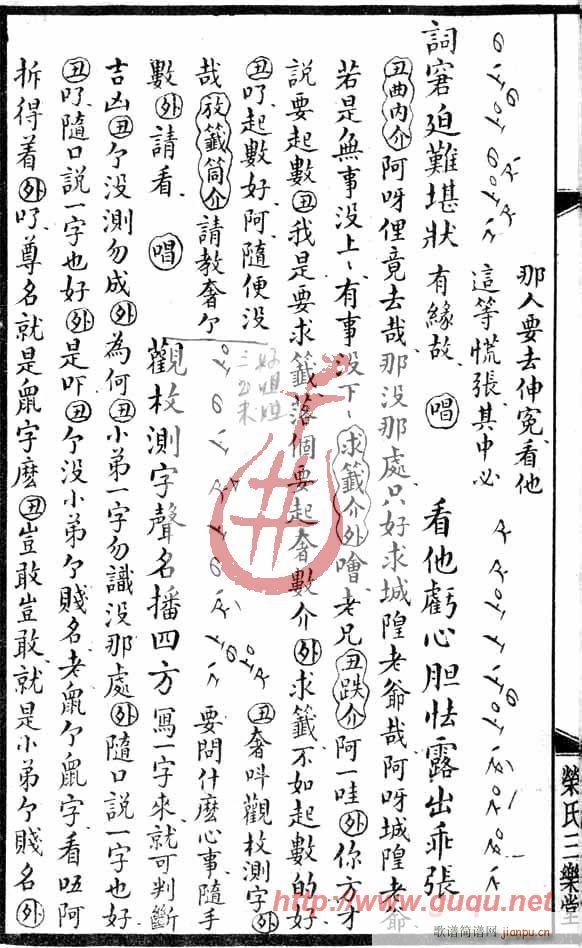 那人要去伸冤看他
這等慌張其中必
詞窘迫難堪狀 有緣故 唱 看他虧心胆怯露出乖張
丑曲內介阿呀俚竟去哉那没那處只好求城隍老爺哉阿呀城隍老爺
若是無事没上〻有事没下〻求籤介外噲老兄丑跌介阿一哇外你方才
說要起數丑我是要求籤落個要起奢數介外求籤不如起數的好
丑吖起數好阿隨便没
丑奢叫觀枚測字外
哉放籤筒介請教奢个
要問什麽心事隨手
數外請看 唱 觀枚測字聲名播四方 寫一字來就可判斷
吉凶丑个没測勿成外為何丑小弟一字勿識没那處外隨口說一字也好
丑吖隨口說一字也好外是吓丑个没小弟个賤名老鼠个鼠字看㕶阿
拆得着外吖尊名就是鼠字麽丑豈敢豈敢就是小弟个賤名外
榮氏三樂堂
http://www.guqu.net
歌谱简谱网
jianpu.cn